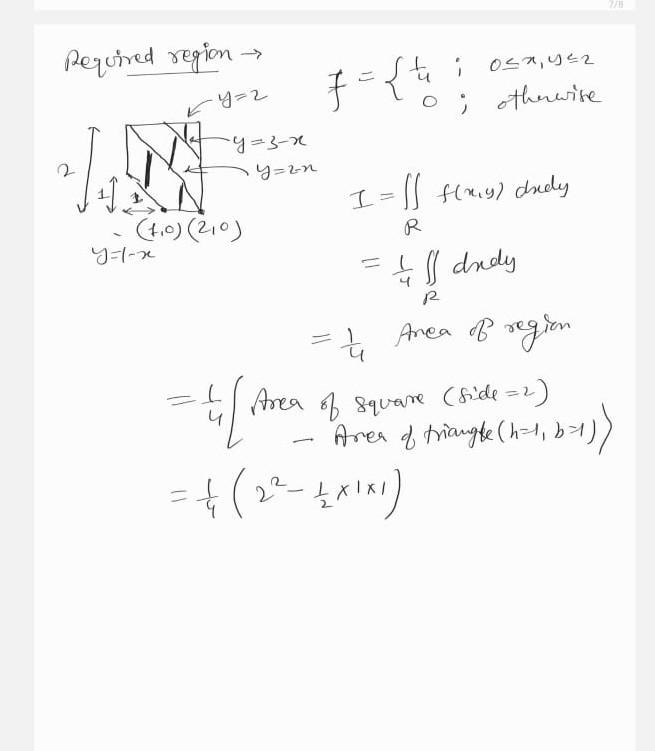 7/8
Required region →
f = { 1/4 ; 0≤x,y≤2
0 ; otherwise
y=2
y=3-x
y=2-x
2
1
1
(1,0) (2,0)
y=1-x
I = ∬ f(x,y) dxdy
R
= 1/4 ∬ dxdy
R
= 1/4 Area of region
= 1/4 [ Area of square (side=2)
- Area of triangle (h=1, b=1) )
= 1/4 ( 2² - 1/2 x 1 x 1 )